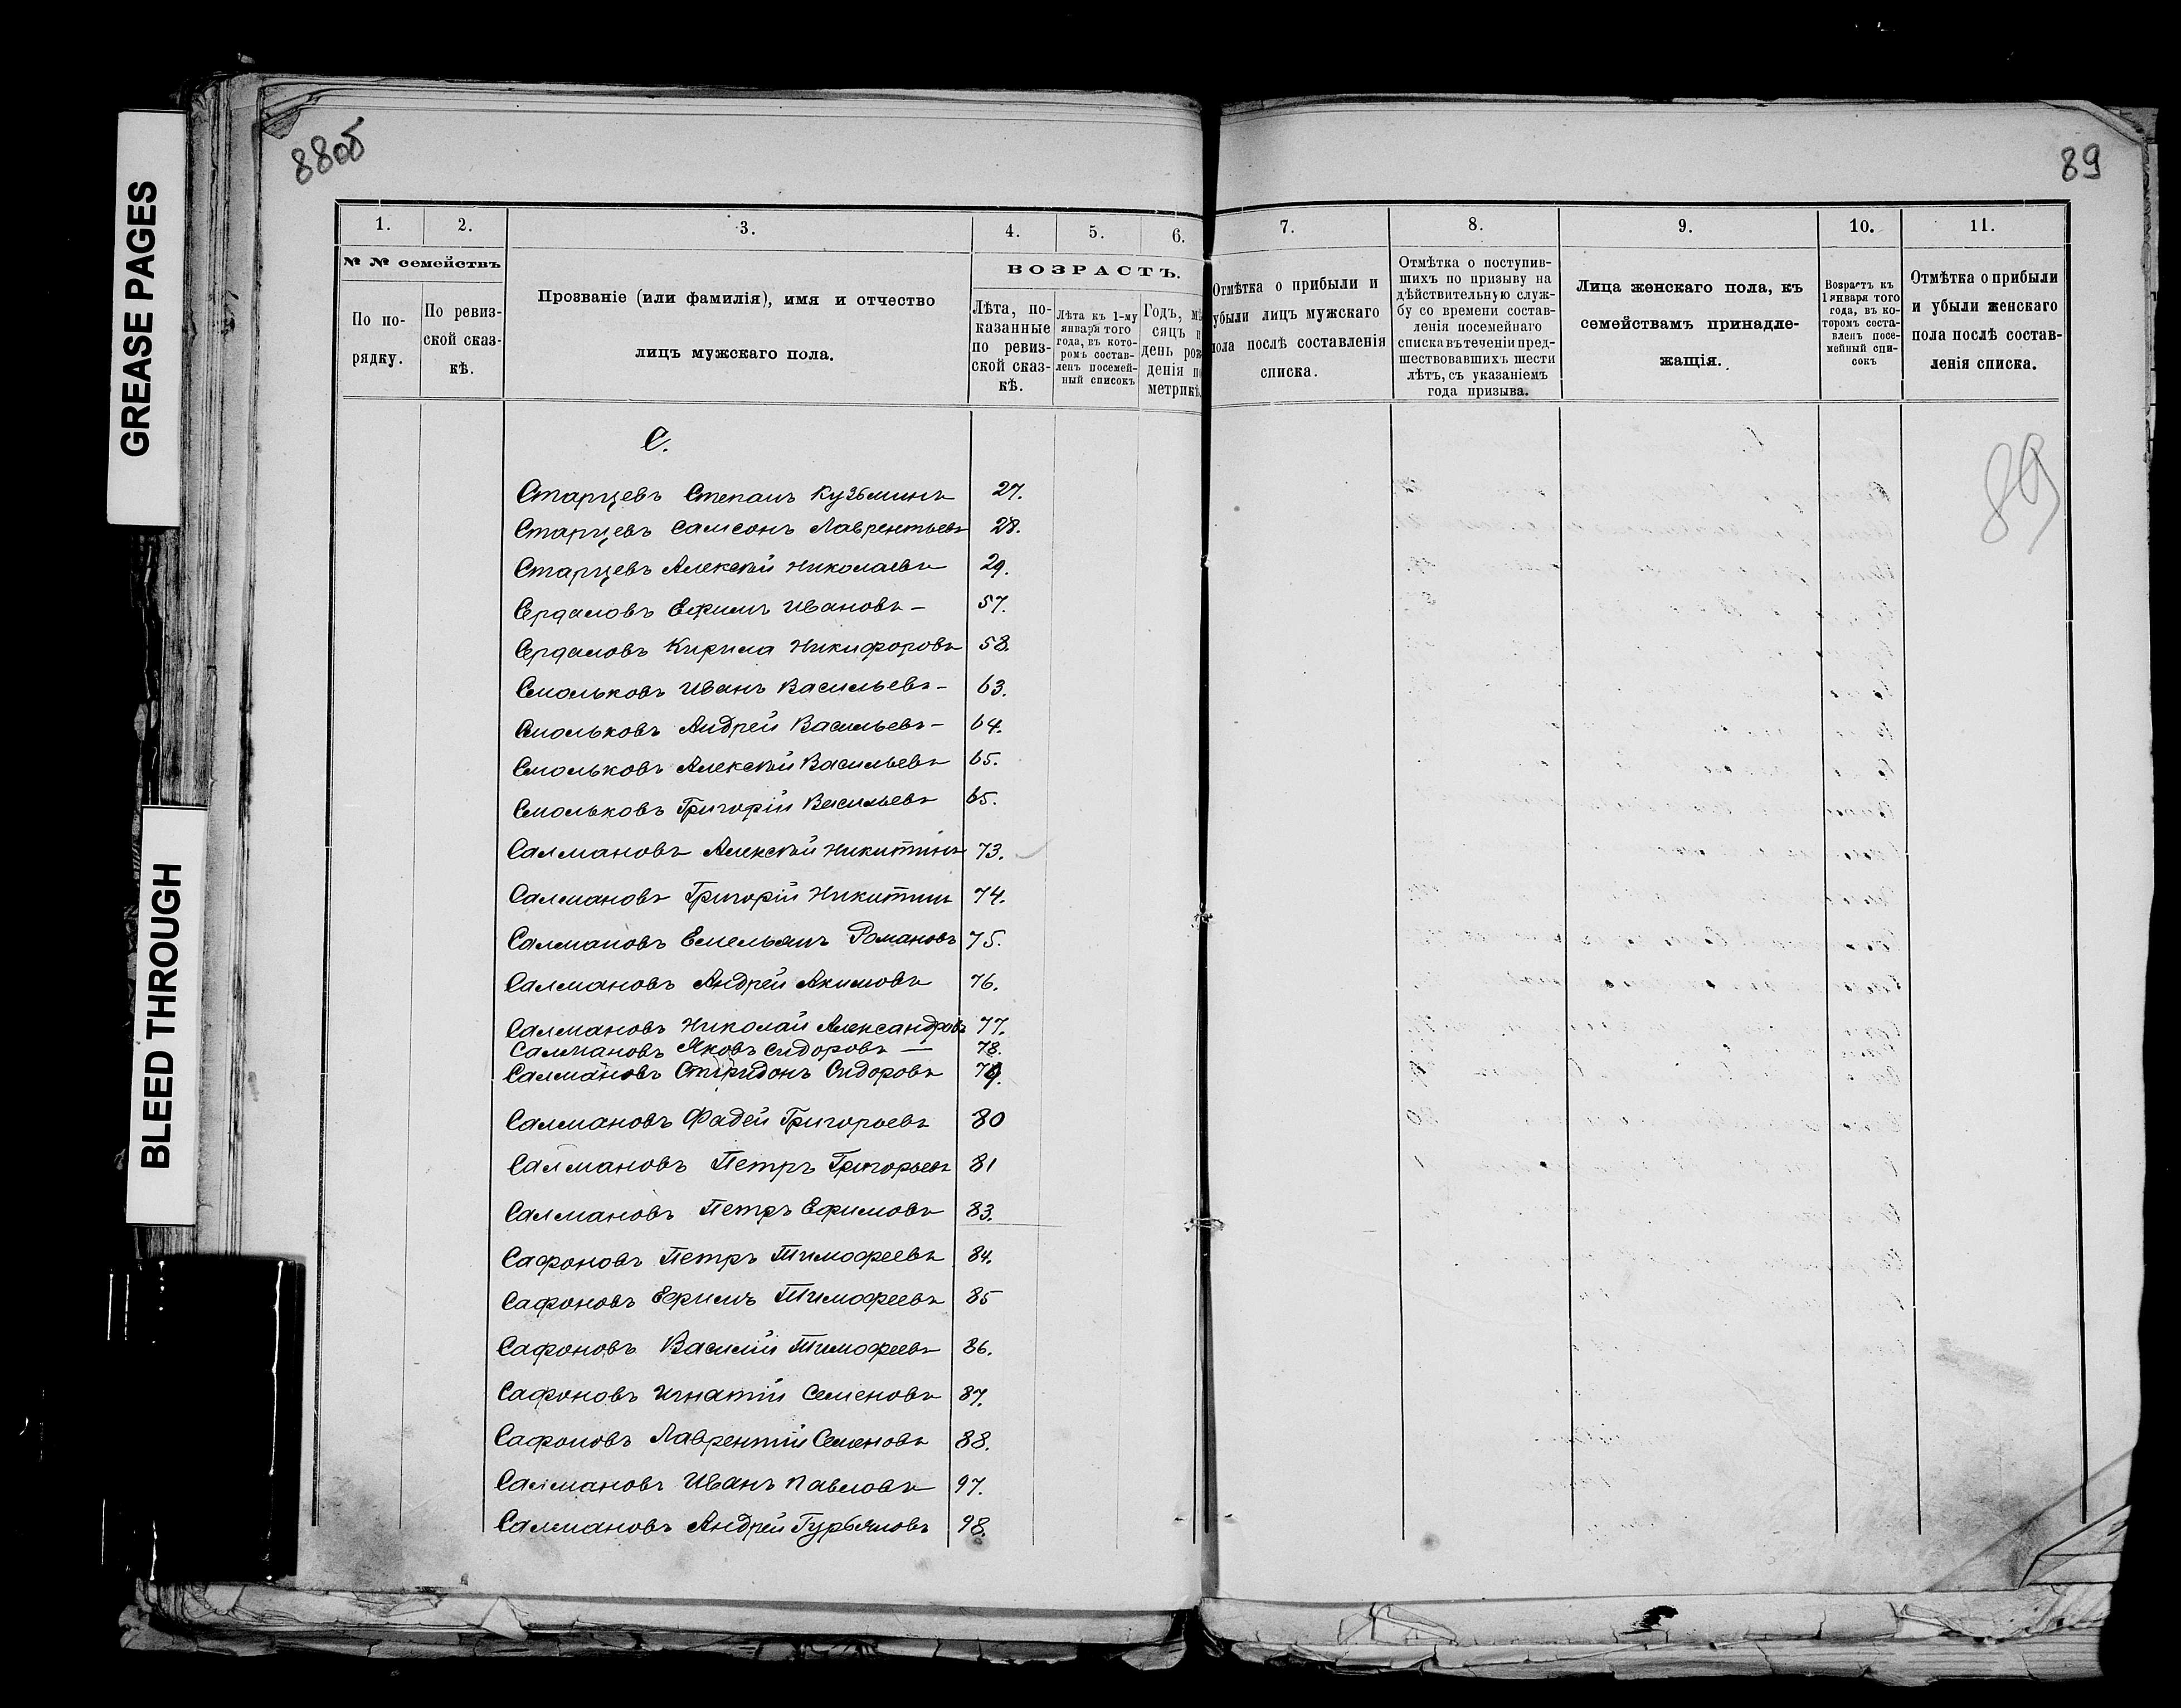 GREASE PAGES
BLEED THROUGH
88об
89
1. 2. 3. 4. 5. 6. 7. 8. 9. 10. 11.
№ № семействъ
По по-
рядку.
По ревиз-
ской сказ-
кѣ.
Прозваніе (или фамилія), имя и отчество
лицъ мужскаго пола.
ВОЗРАСТЪ.
Лѣта, по-
казанные
по ревиз-
ской сказ-
кѣ.
Лѣта къ 1-му
января того
года, въ кото-
ромъ состав-
ленъ посемей-
ный списокъ
Годъ, мѣ
сяцъ и
день рож
денія по
метрикѣ.
Отмѣтка о прибыли и
убыли лицъ мужскаго
пола послѣ составленія
списка.
Отмѣтка о поступив-
шихъ по призыву на
дѣйствительную служ-
бу со времени состав-
ленія посемейнаго
списка въ теченіи пред-
шествовавшихъ шести
лѣтъ, съ указаніемъ
года призыва.
Лица женскаго пола, къ
семействамъ принадле-
жащія.
Возрастъ къ
1 января того
года, въ ко-
торомъ соста-
вленъ посе-
мейный спи-
сокъ
Отмѣтка о прибыли
и убыли женскаго
пола послѣ состав-
ленія списка.
С.
89
Старцевъ Степанъ Кузьминъ 27.
Старцевъ Самсонъ Лаврентьевъ 28.
Старцевъ Алексѣй Николаевъ 29.
Сердаловъ Ефимъ Ивановъ – 57.
Сердаловъ Кирила Никифоровъ 58.
Смольковъ Иванъ Васильевъ – 63.
Смольковъ Андрей Васильевъ – 64.
Смольковъ Алексѣй Васильевъ 65.
Смольковъ Григорій Васильевъ 65.
Салмановъ Алексѣй Никитинъ 73.
Салмановъ Григорій Никитинъ 74.
Салмановъ Емельянъ Романовъ 75.
Салмановъ Андрей Акимовъ 76.
Салмановъ Николай Александровъ 77.
Салмановъ Яковъ Сидоровъ — 78.
Салмановъ Спиридонъ Сидоровъ 79.
Салмановъ Фадей Григорьевъ 80
Салмановъ Петръ Григорьевъ 81
Салмановъ Петръ Ефимовъ 83.
Сафоновъ Петръ Тимофеевъ 84.
Сафоновъ Ефимъ Тимофеевъ 85
Сафоновъ Василій Тимофеевъ 86.
Сафоновъ Игнатій Семеновъ 87.
Сафоновъ Лаврентій Семеновъ 88.
Салмановъ Иванъ Павловъ 97.
Салмановъ Андрей Гурьяновъ 98.